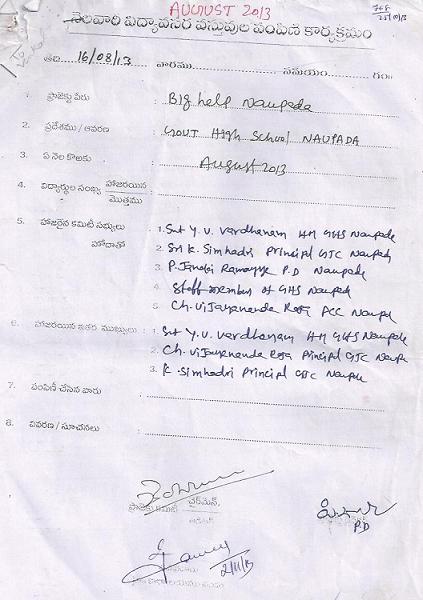 AUGUST 2013
నెలవారి విద్యావసర వస్తువుల పంపిణి కార్యక్రమం
తేది 16/08/13 వారము సమయం గం॥
1. ప్రాజెక్టు పేరు : Big help Naupada
2. ప్రదేశము / ఆవరణ : GOVT High School NAUPADA
3. ఏ నెల కొఱకు : August 2013
4. విద్యార్థుల సంఖ్య హాజరయిన / మొత్తము :
5. హాజరైన కమిటీ సభ్యులు : 1. Smt Y.V. Vardhanam HM GHS Naupada
హోదాతో 2. Sri K. Simhadri Principal GJC Naupada
3. P. Janaki Ramayya P.D Naupada
4. Staff member of GHS Naupada
5. Ch. Vijayananda Raja PCC Naupada
6. హాజరయిన ఇతర ముఖ్యులు : 1. Smt Y.V. Vardhanam HM GHS Naupada
2. Ch. Vijayananda Raja Principal GJC Naupa
3. K. Simhadri Principal GJC Naupada
7. పంపిణీ చేసిన వారు :
8. వివరణ / సూచనలు :
ప్రాజెక్టు కమిటీ చైర్మన్,
P.D
2/11/13